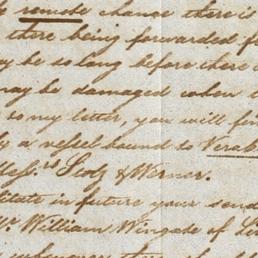 remote chance there is
there being forwarded f
be so long before there
may be damaged when
so my letter, you will fin
a vessel bound to Vera
Mess.rs Stolz & Werner.
in future your send
Mr. William Wingate of